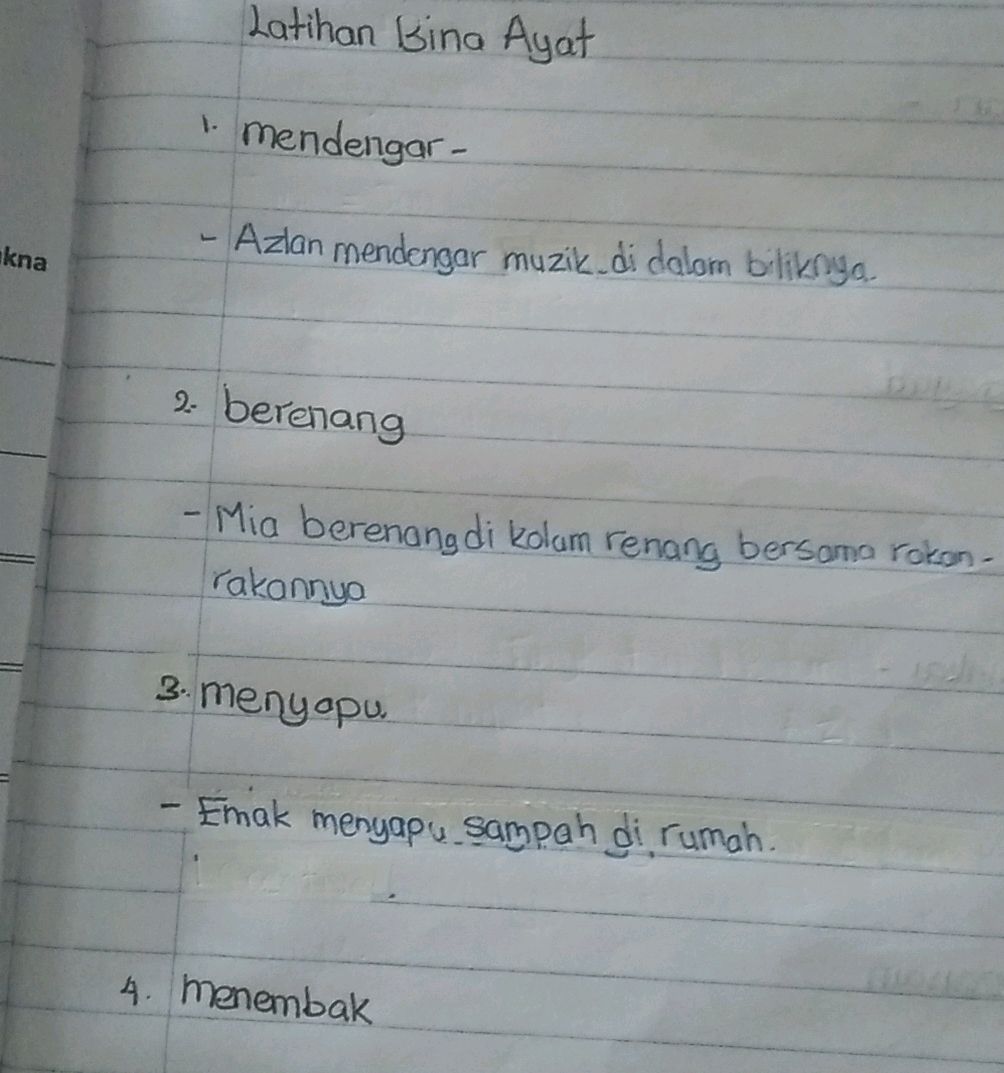 Latihan Bina Ayat
1. mendengar -
- Azlan mendengar muzik di dalam biliknya.
kna
2. berenang
- Mia berenang di kolam renang bersama rakan-
rakannya
3. menyapu
- Emak menyapu sampah di rumah.
4. menembak